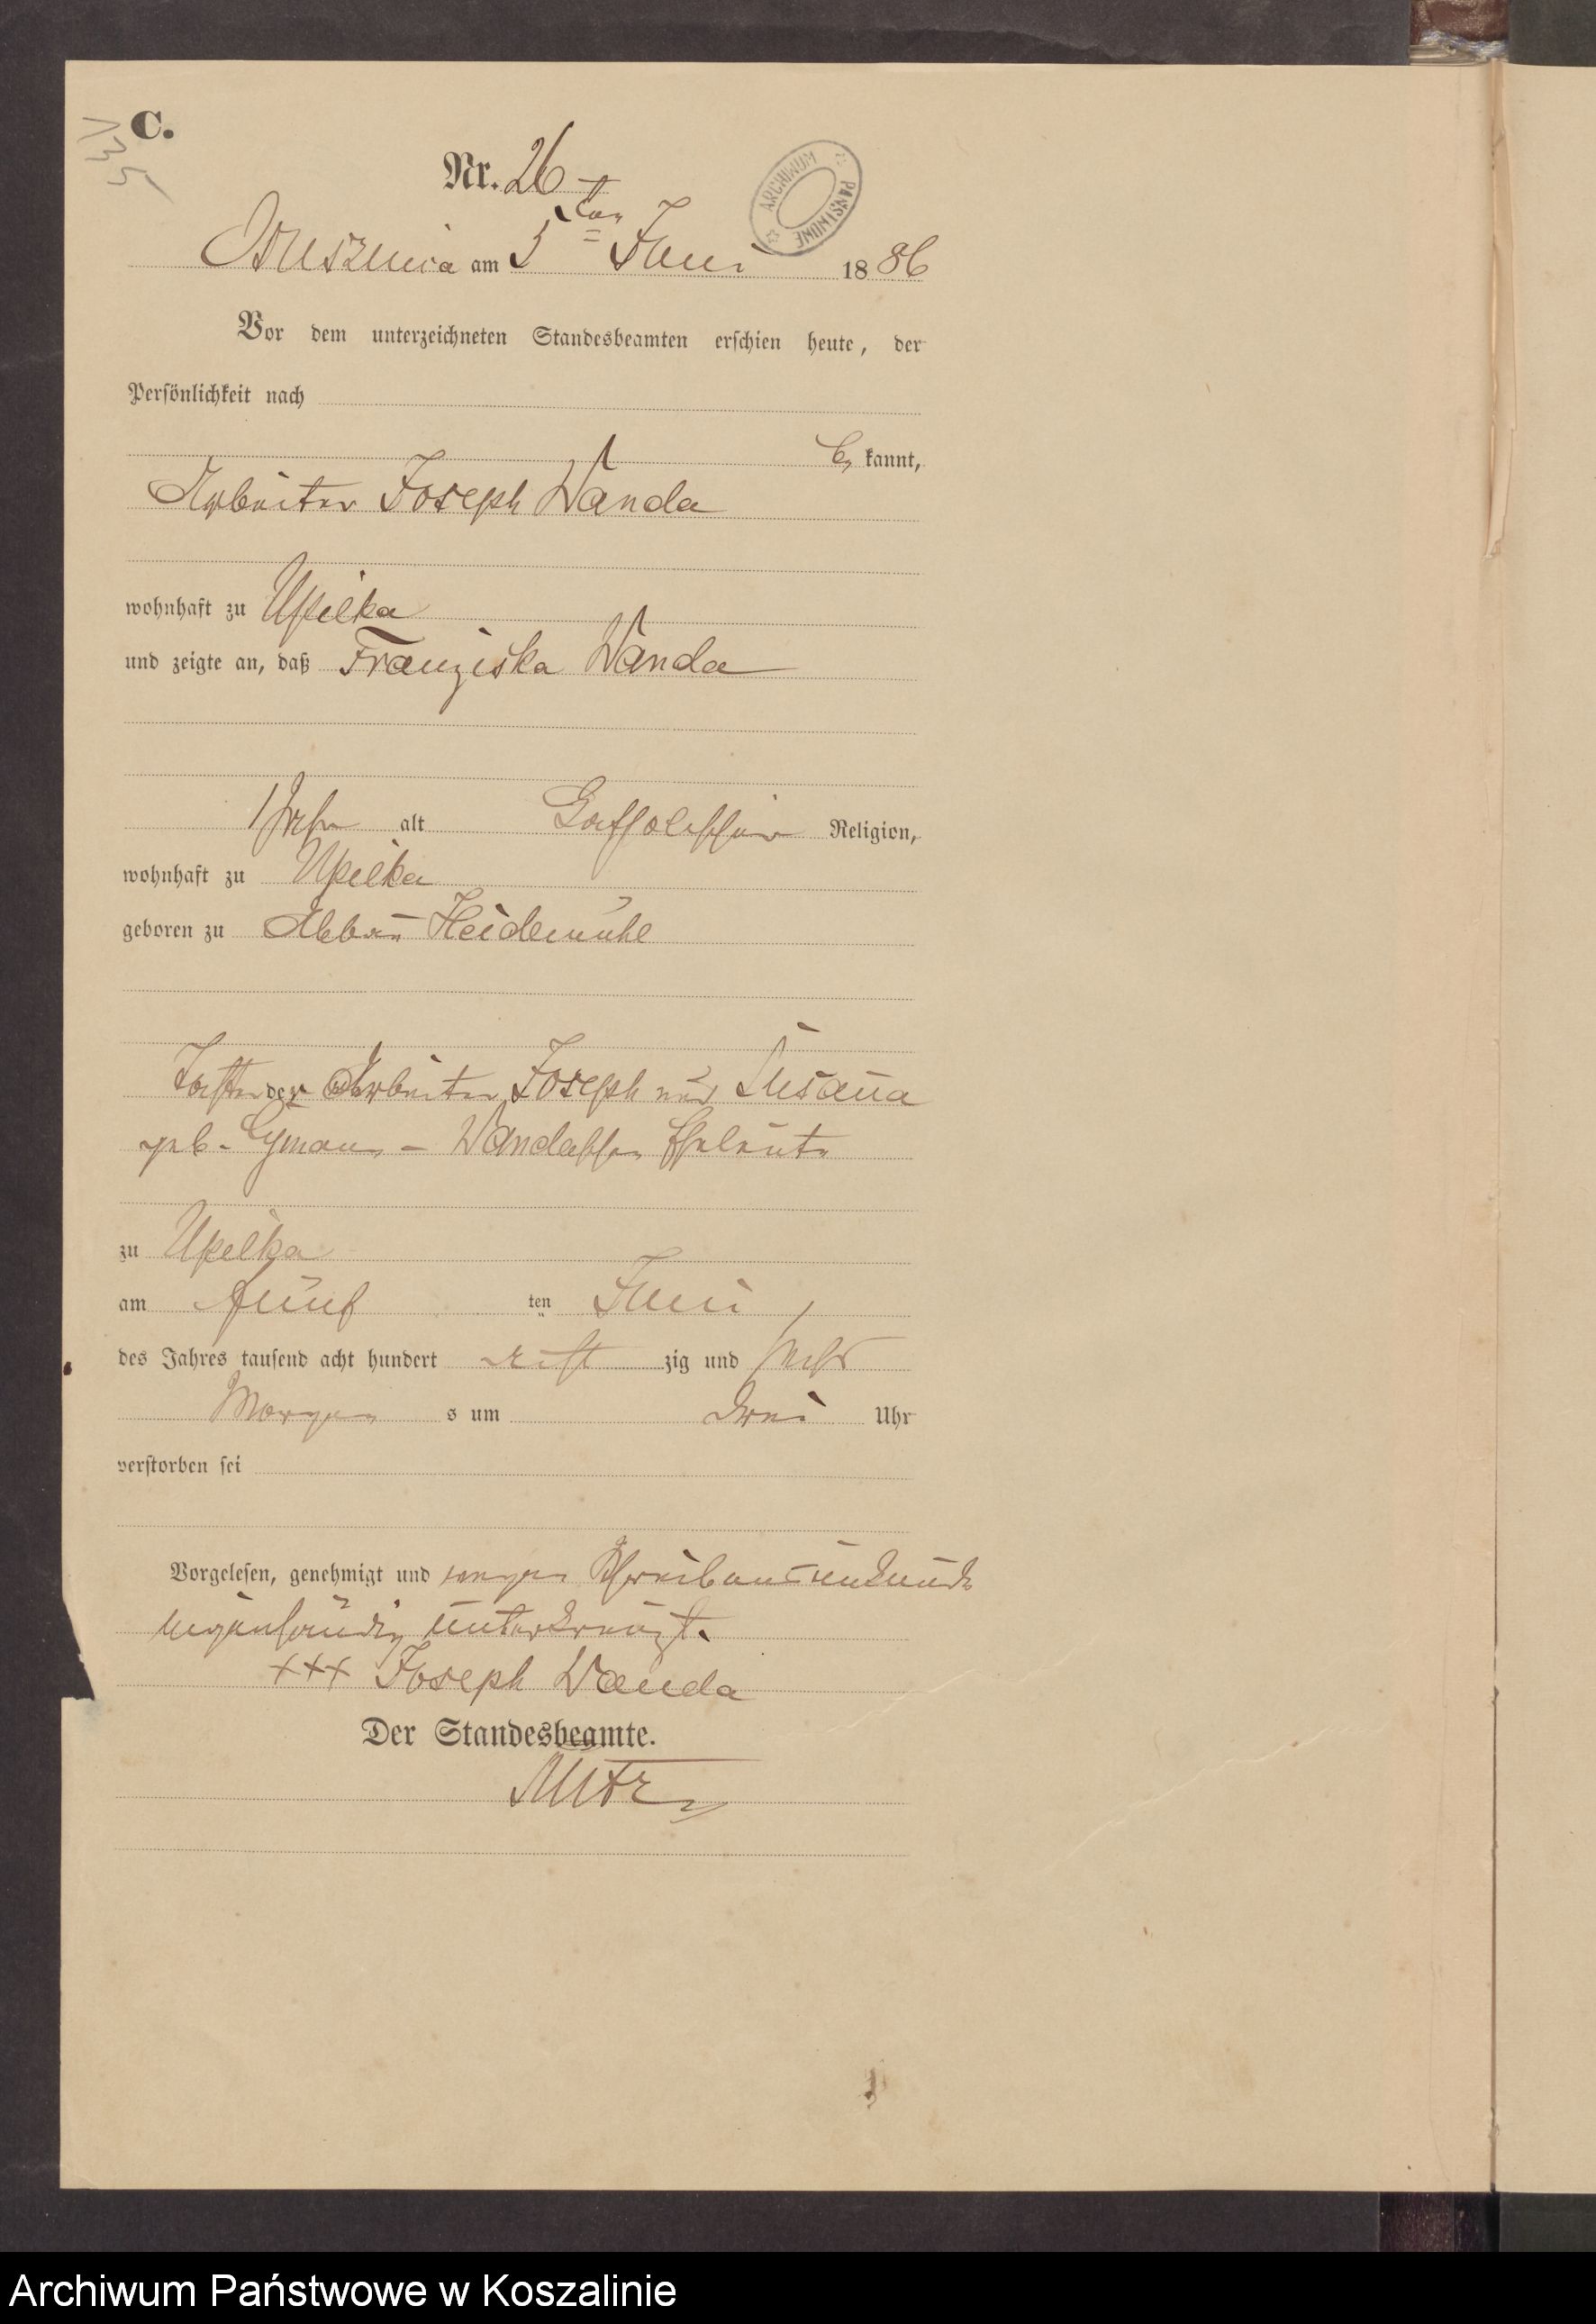 C.
135
Nr. 26
ARCHIWUM PAŃSTWOWE
am 5ten Juni 1886
Vor dem unterzeichneten Standesbeamten erschien heute, der
Persönlichkeit nach
be kannt,
Arbeiter Joseph Wanda
wohnhaft zu Upilka
und zeigte an, daß Franziska Wanda
1 Jahr alt Katholischer Religion,
wohnhaft zu Upilka
geboren zu Abbau Heidemühl
Tochter der Arbeiter Joseph und Susanna
geb. Wandaschen Eheleute
zu Upilka
am fünf ten Juni
des Jahres tausend acht hundert acht zig und sechs
Morgen s um drei Uhr
verstorben sei
Vorgelesen, genehmigt und wegen Schreibensunkunde
eigenhändig unterkreuzt.
+++ Joseph Wanda
Der Standesbeamte.
Archiwum Państwowe w Koszalinie